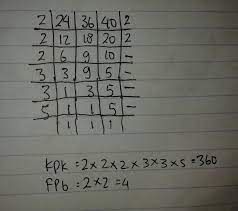 2 | 24 | 36 | 40 | 2
2 | 12 | 18 | 20 | 2
2 | 6 | 9 | 10 | -
3 | 3 | 9 | 5 | -
3 | 1 | 3 | 5 | -
5 | 1 | 1 | 5 | -
1 | 1 | 1
KPK = 2 x 2 x 2 x 3 x 3 x 5 = 360
FPb = 2 x 2 = 4